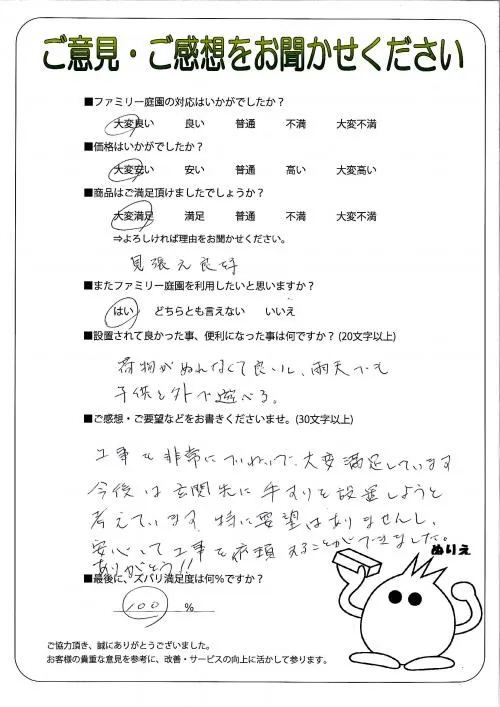 ご意見・ご感想をお聞かせください
■ファミリー庭園の対応はいかがでしたか？
大変良い 良い 普通 不満 大変不満
■価格はいかがでしたか？
大変安い 安い 普通 高い 大変高い
■商品はご満足頂けましたでしょうか？
大変満足 満足 普通 不満 大変不満
⇒よろしければ理由をお聞かせください。
見張え良好
■またファミリー庭園を利用したいと思いますか？
はい どちらとも言えない いいえ
■設置されて良かった事、便利になった事は何ですか？(20文字以上)
荷物がぬれなくて良いし、雨天でも
子供と外で遊べる。
■ご感想・ご要望などをお書きくださいませ。(30文字以上)
工事も非常にていねいで、大変満足しています
今後は玄関先に手すりを設置しようと
考えています 特に要望はありませんし、
安心して工事を依頼することができました。
ありがとう!!
ぬりえ
■最後に、ズバリ満足度は何%ですか？
100 %
ご協力頂き、誠にありがとうございました。
お客様の貴重な意見を参考に、改善・サービスの向上に活かして参ります。